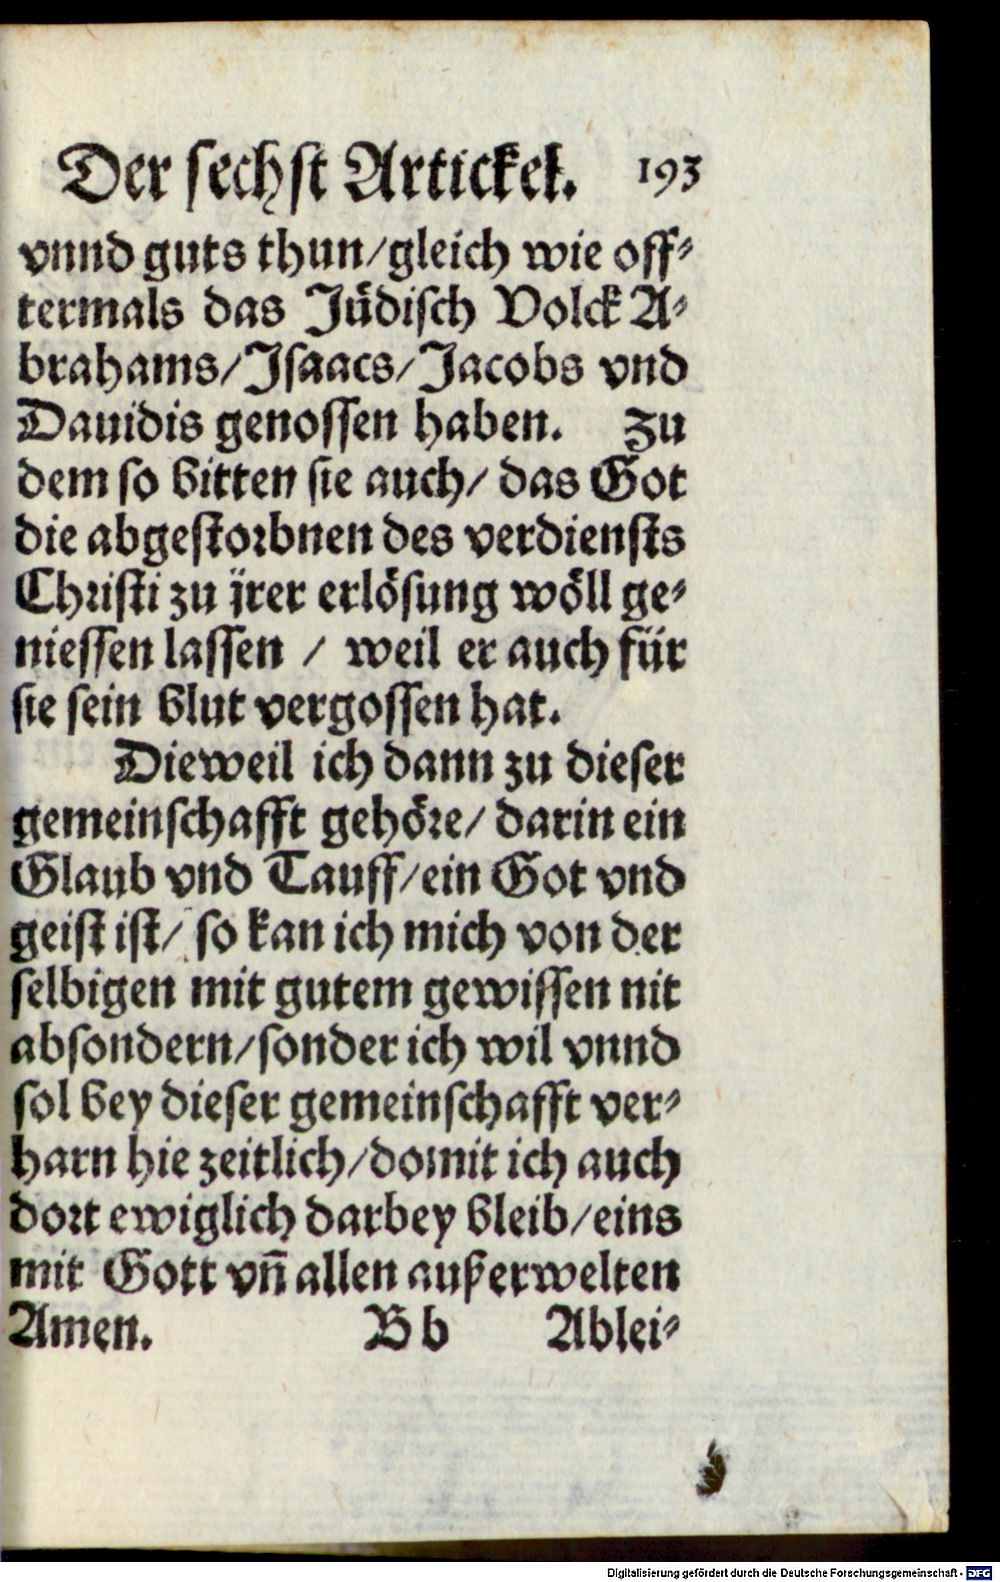 Der sechst Artickel. 193
vnnd guts thun/gleich wie off⸗
termals das Jüdisch Volck A⸗
brahams/Isaacs/Jacobs vnd
Dauidis genossen haben. Zu
dem so bitten sie auch/ das Got
die abgestorbnen des verdiensts
Christi zu jrer erlösung wöll ge⸗
niessen lassen / weil er auch für
sie sein blut vergossen hat.
Dieweil ich dann zu dieser
gemeinschafft gehöre/ darin ein
Glaub vnd Tauff/ein Got vnd
geist ist/ so kan ich mich von der
selbigen mit gutem gewissen nit
absondern/sonder ich wil vnnd
sol bey dieser gemeinschafft ver⸗
harn hie zeitlich/domit ich auch
dort ewiglich darbey bleib/eins
mit Gott vn̄ allen außerwelten
Amen. B b Ablei⸗
Digitalisierung gefördert durch die Deutsche Forschungsgemeinschaft - DFG